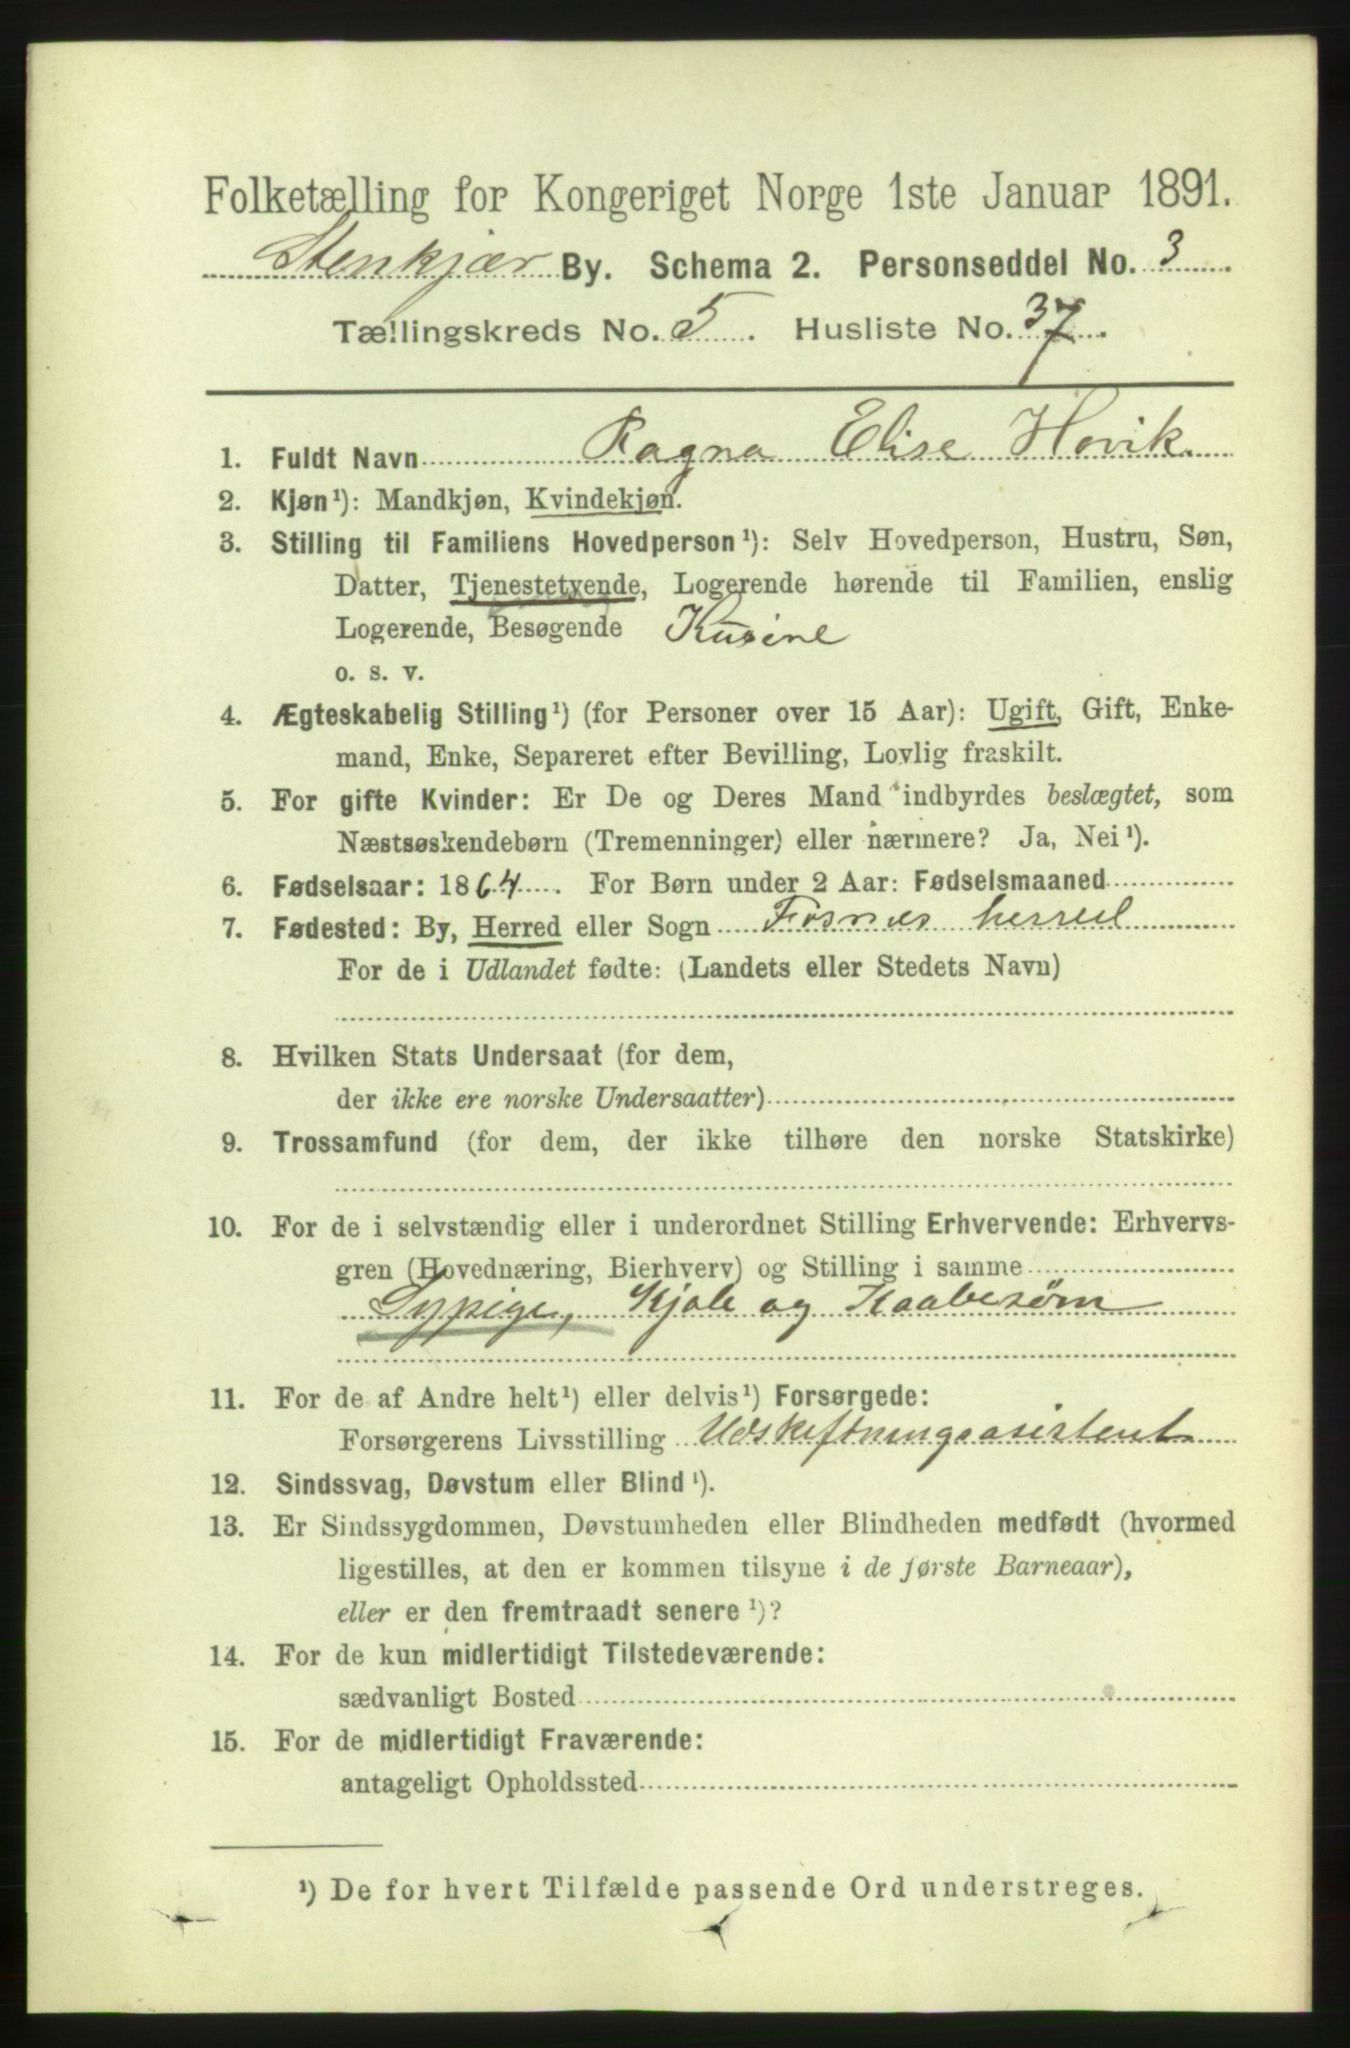 Folketælling for Kongeriget Norge 1ste Januar 1891.
Stenkjær By. Schema 2. Personseddel No. 3.
Tællingskreds No. 5. Husliste No. 37.
1. Fuldt Navn Ragna Elise Hovik.
2. Kjøn¹): Mandkjøn, Kvindekjøn.
3. Stilling til Familiens Hovedperson¹): Selv Hovedperson, Hustru, Søn,
Datter, Tjenestetyende, Logerende hørende til Familien, enslig
Logerende, Besøgende Kusine
o. s. v.
4. Ægteskabelig Stilling¹) (for Personer over 15 Aar): Ugift, Gift, Enke-
mand, Enke, Separeret efter Bevilling, Lovlig fraskilt.
5. For gifte Kvinder: Er De og Deres Mand indbyrdes beslægtet, som
Næstsøskendebørn (Tremenninger) eller nærmere? Ja, Nei¹).
6. Fødselsaar: 1864. For Børn under 2 Aar: Fødselsmaaned
7. Fødested: By, Herred eller Sogn Fosnæs herred
For de i Udlandet fødte: (Landets eller Stedets Navn)
8. Hvilken Stats Undersaat (for dem,
der ikke ere norske Undersaatter)
9. Trossamfund (for dem, der ikke tilhøre den norske Statskirke)
10. For de i selvstændig eller i underordnet Stilling Erhvervende: Erhvervs-
gren (Hovednæring, Bierhverv) og Stilling i samme
Sypige, Kjole og Kaabesøm
11. For de af Andre helt¹) eller delvis¹) Forsørgede:
Forsørgerens Livsstilling Udskiftningsasistent
12. Sindssvag, Døvstum eller Blind¹).
13. Er Sindssygdommen, Døvstumheden eller Blindheden medfødt (hvormed
ligestilles, at den er kommen tilsyne i de første Barneaar),
eller er den fremtraadt senere¹)?
14. For de kun midlertidigt Tilstedeværende:
sædvanligt Bosted
15. For de midlertidigt Fraværende:
antageligt Opholdssted
¹) De for hvert Tilfælde passende Ord understreges.